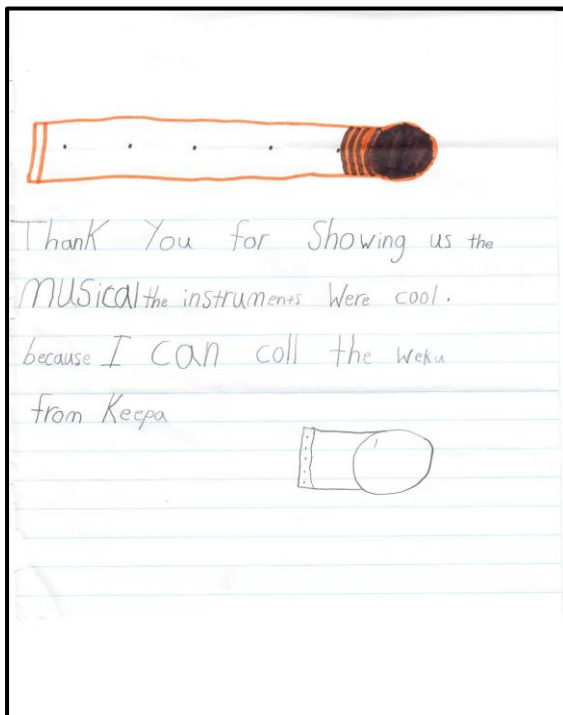 Thank You for Showing us the
Musical the instruments Were cool.
because I can coll the weku
from Keepa